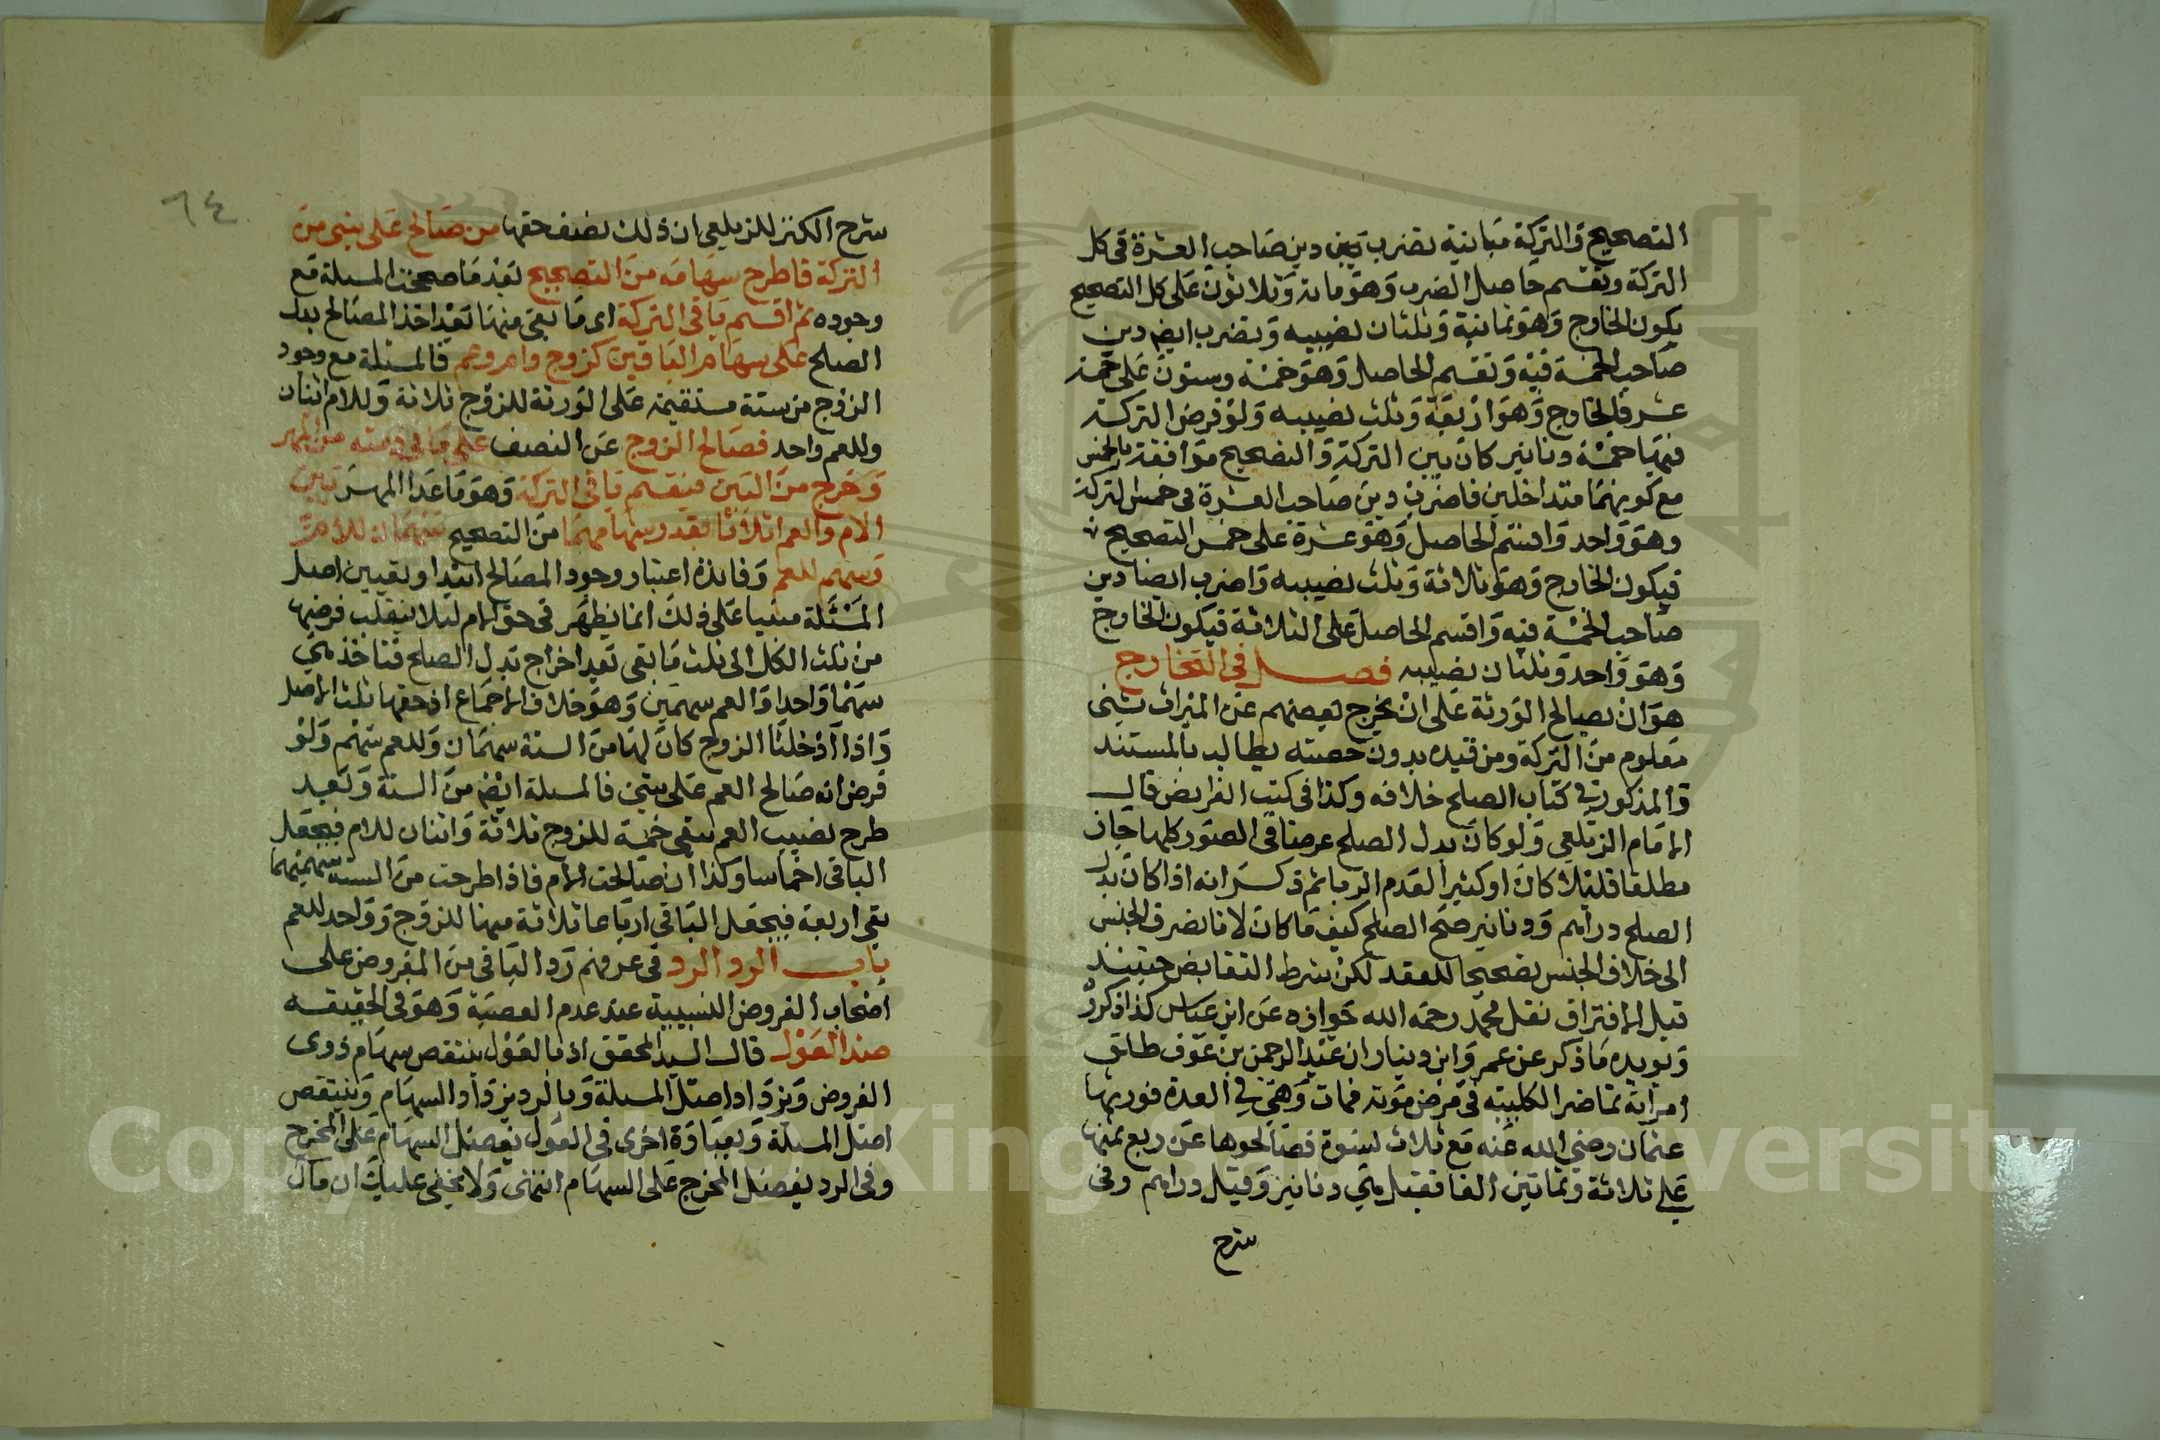 التصحيح والتركة مباينة تضرب بين دين صاحب العشرة في كل
التركة وتقسم حاصل الضرب وهو مائة وثلاثون على كل التصحيح
يكون الخارج وهو ثمانية وثلثان نصيبه وتضرب ايضا دين
صاحب الخمسة فيه وتقسم الحاصل وهو خمسة وستون على خمسة
عشر فالخارج وهو اربعة وثلث نصيبه ولو فرض التركة
فيها خمسة دنانير كان بين التركة والتصحيح موافقة بالخمس
مع كونهما متداخلين فاضرب دين صاحب العشرة في خمس التركة
وهو واحد واقسم الحاصل وهو عشرة على خمس التصحيح
فيكون الخارج وهو ثلاثة وثلث نصيبه واضرب ايضا دين
صاحب الخمسة فيه واقسم الحاصل على الثلاثة فيكون الخارج
وهو واحد وثلثان نصيبه فصل في التخارج
هو ان يصالح الورثة على ان يخرج بعضهم عن الميراث بشئ
معلوم من التركة ومن قيده بدون حصته يطالب بالمستند
والمذكور في كتاب الصلح خلافه وكذا في كتب الفرايض قال
الامام الزيلعي ولو كان بدل الصلح عرضا في الصور كلها جاز
مطلقا قليلا كان او كثيرا لعدم الربا ثم ذكر انه اذا كان بدل
الصلح دراهم ودنانير صح الصلح كيف ما كان لانا نصرف الجنس
الى خلاف الجنس تصحيحا للعقد لكن بشرط التقابض حينئذ
قبل الافتراق نقل محمد رحمه الله جوازه عن ابن عباس كذا ذكروا
ويويده ما ذكر عن عمر وابن دينار ان عبد الرحمن بن عوف طلق
امراته تماضر الكلبيه في مرض موته فمات وهي في العدة فورثها
عثمان رضي الله عنه مع ثلاث نسوة فصالحوها عن ربع ثمنها
على ثلاثة وثمانين الفا فقيل هي دنانير وقيل دراهم وفي
شرح
٦٤
شرح الكنز للزيلعي ان ذلك نصف حقها من صالح على شئ من
التركة فاطرح سهامه من التصحيح بعد ما صححت المسئلة مع
وجوده ثم اقسم باقي التركة اى ما بقى منها بعد اخذ المصالح بدل
الصلح على سهام الباقين كزوج وام وعم فالمسئلة مع وجود
الزوج من ستة مستقيمة على الورثة للزوج ثلاثة وللام اثنان
وللعم واحد فصالح الزوج عن النصف على ما في ذمته من المهر
وخرج من البين فيقسم باقي التركة وهو ما عدا المهر بين
الام والعم اثلاثا بقدر سهامهما من التصحيح سهمان للام
وسهم للعم وفائدة اعتبار وجود المصالح ابتدا وتعيين اصل
المسئلة مبنيا على ذلك انما يظهر في حق الام ليلا ينقلب فرضها
من ثلث الكل الى ثلث ما بقى بعد اخراج بدل الصلح فتاخذ هي
سهما واحدا والعم سهمين وهو خلاف الاجماع اذ حقها ثلث الاصل
واذا ادخلنا الزوج كان لها من الستة سهمان وللعم سهم ولو
فرض انه صالح العم على شئ فالمسئلة ايضا من الستة وبعد
طرح نصيب العم بقي خمسة للزوج ثلاثة واثنان للام فيجعل
الباقي اخماسا وكذا ان صالحت الام فاذا طرحت من الستة سهميهما
بقي اربعة فيجعل الباقي ارباعا ثلاثة منها للزوج وواحد للعم
باب الرد الرد في عرفهم رد الباقي من المفروض على
اصحاب الفروض النسبية عند عدم العصبة وهو في الحقيقه
ضد العول قال السيد المحقق اذ بالعول ينتقص سهام ذوى
الفروض ويزداد اصل المسئلة وبالرد يزداد السهام وينتقص
اصل المسئلة وبعبارة اخرى في العول يفضل السهام على المخرج
وفي الرد يفضل المخرج على السهام انتهى ولا يخفى عليك ان مال
Copyright © King Saud University